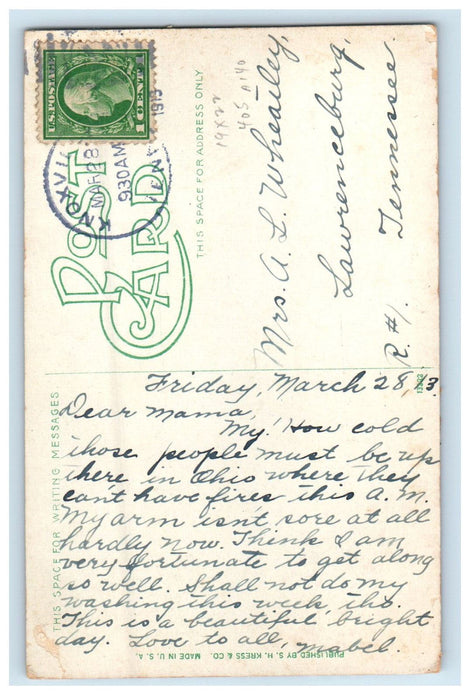 U.S. POSTAGE
1 CENT 1
KNOXVI
MAR 28
930 AM
1913
POST
CARD
THIS SPACE FOR ADDRESS ONLY
19x22
405 A140
Mrs. A. L. Wheatley,
Lawrenceburg,
Tennessee.
R. #1.
THIS SPACE FOR WRITING MESSAGES
Friday, March 28, 13
Dear Mama,
My! How cold
those people must be up
there in Ohio where they
cant have fires this A. M.
My arm isn't sore at all
hardly now. Think I am
very fortunate to get along
so well. Shall not do my
washing this week, tho.
This is a beautiful bright
day. Love to all, Mabel.
PUBLISHED BY S. H. KRESS & CO. MADE IN U. S. A.